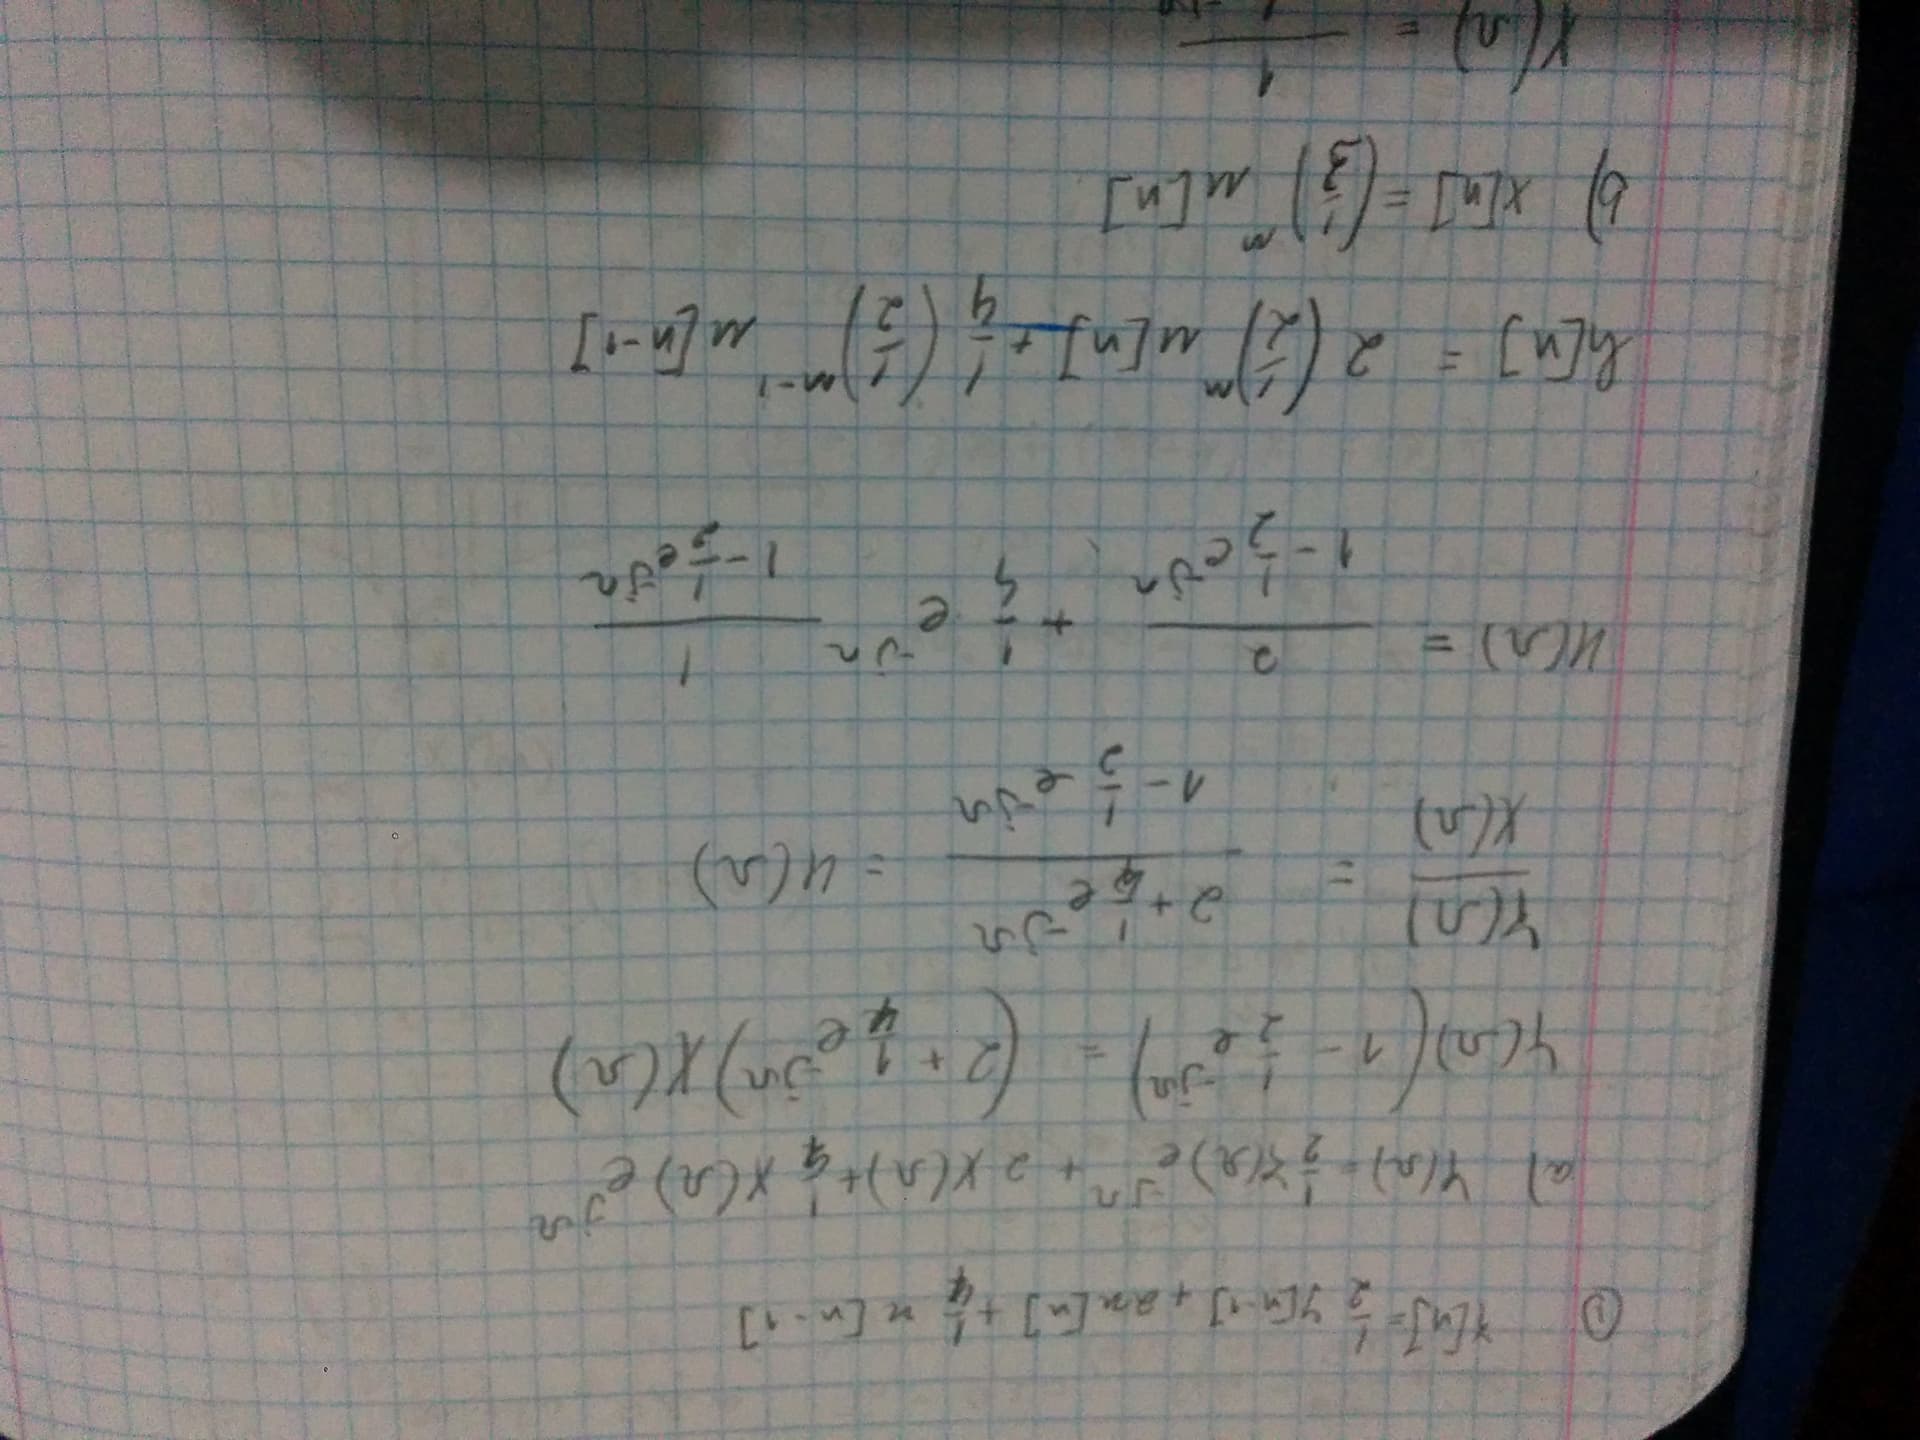 ① Y[n] = 1/2 y[n-1] + 2x[n] + 1/4 x[n-1]
a) Y(Ω) = 1/2 Y(Ω) e^{-jΩ} + 2 X(Ω) + 1/4 X(Ω) e^{jΩ}
Y(Ω) (1 - 1/2 e^{-jΩ}) = (2 + 1/4 e^{-jΩ}) X(Ω)
Y(Ω)/X(Ω) = (2 + 1/4 e^{-jΩ})/(1 - 1/2 e^{-jΩ}) = H(Ω)
H(Ω) = 2/(1 - 1/2 e^{-jΩ}) + 1/4 e^{-jΩ} 1/(1 - 1/2 e^{-jΩ})
h[n] = 2 (1/2)^n u[n] + 1/4 (1/2)^{n-1} u[n-1]
b) x[n] = (1/3)^n u[n]
X(Ω) = 1/